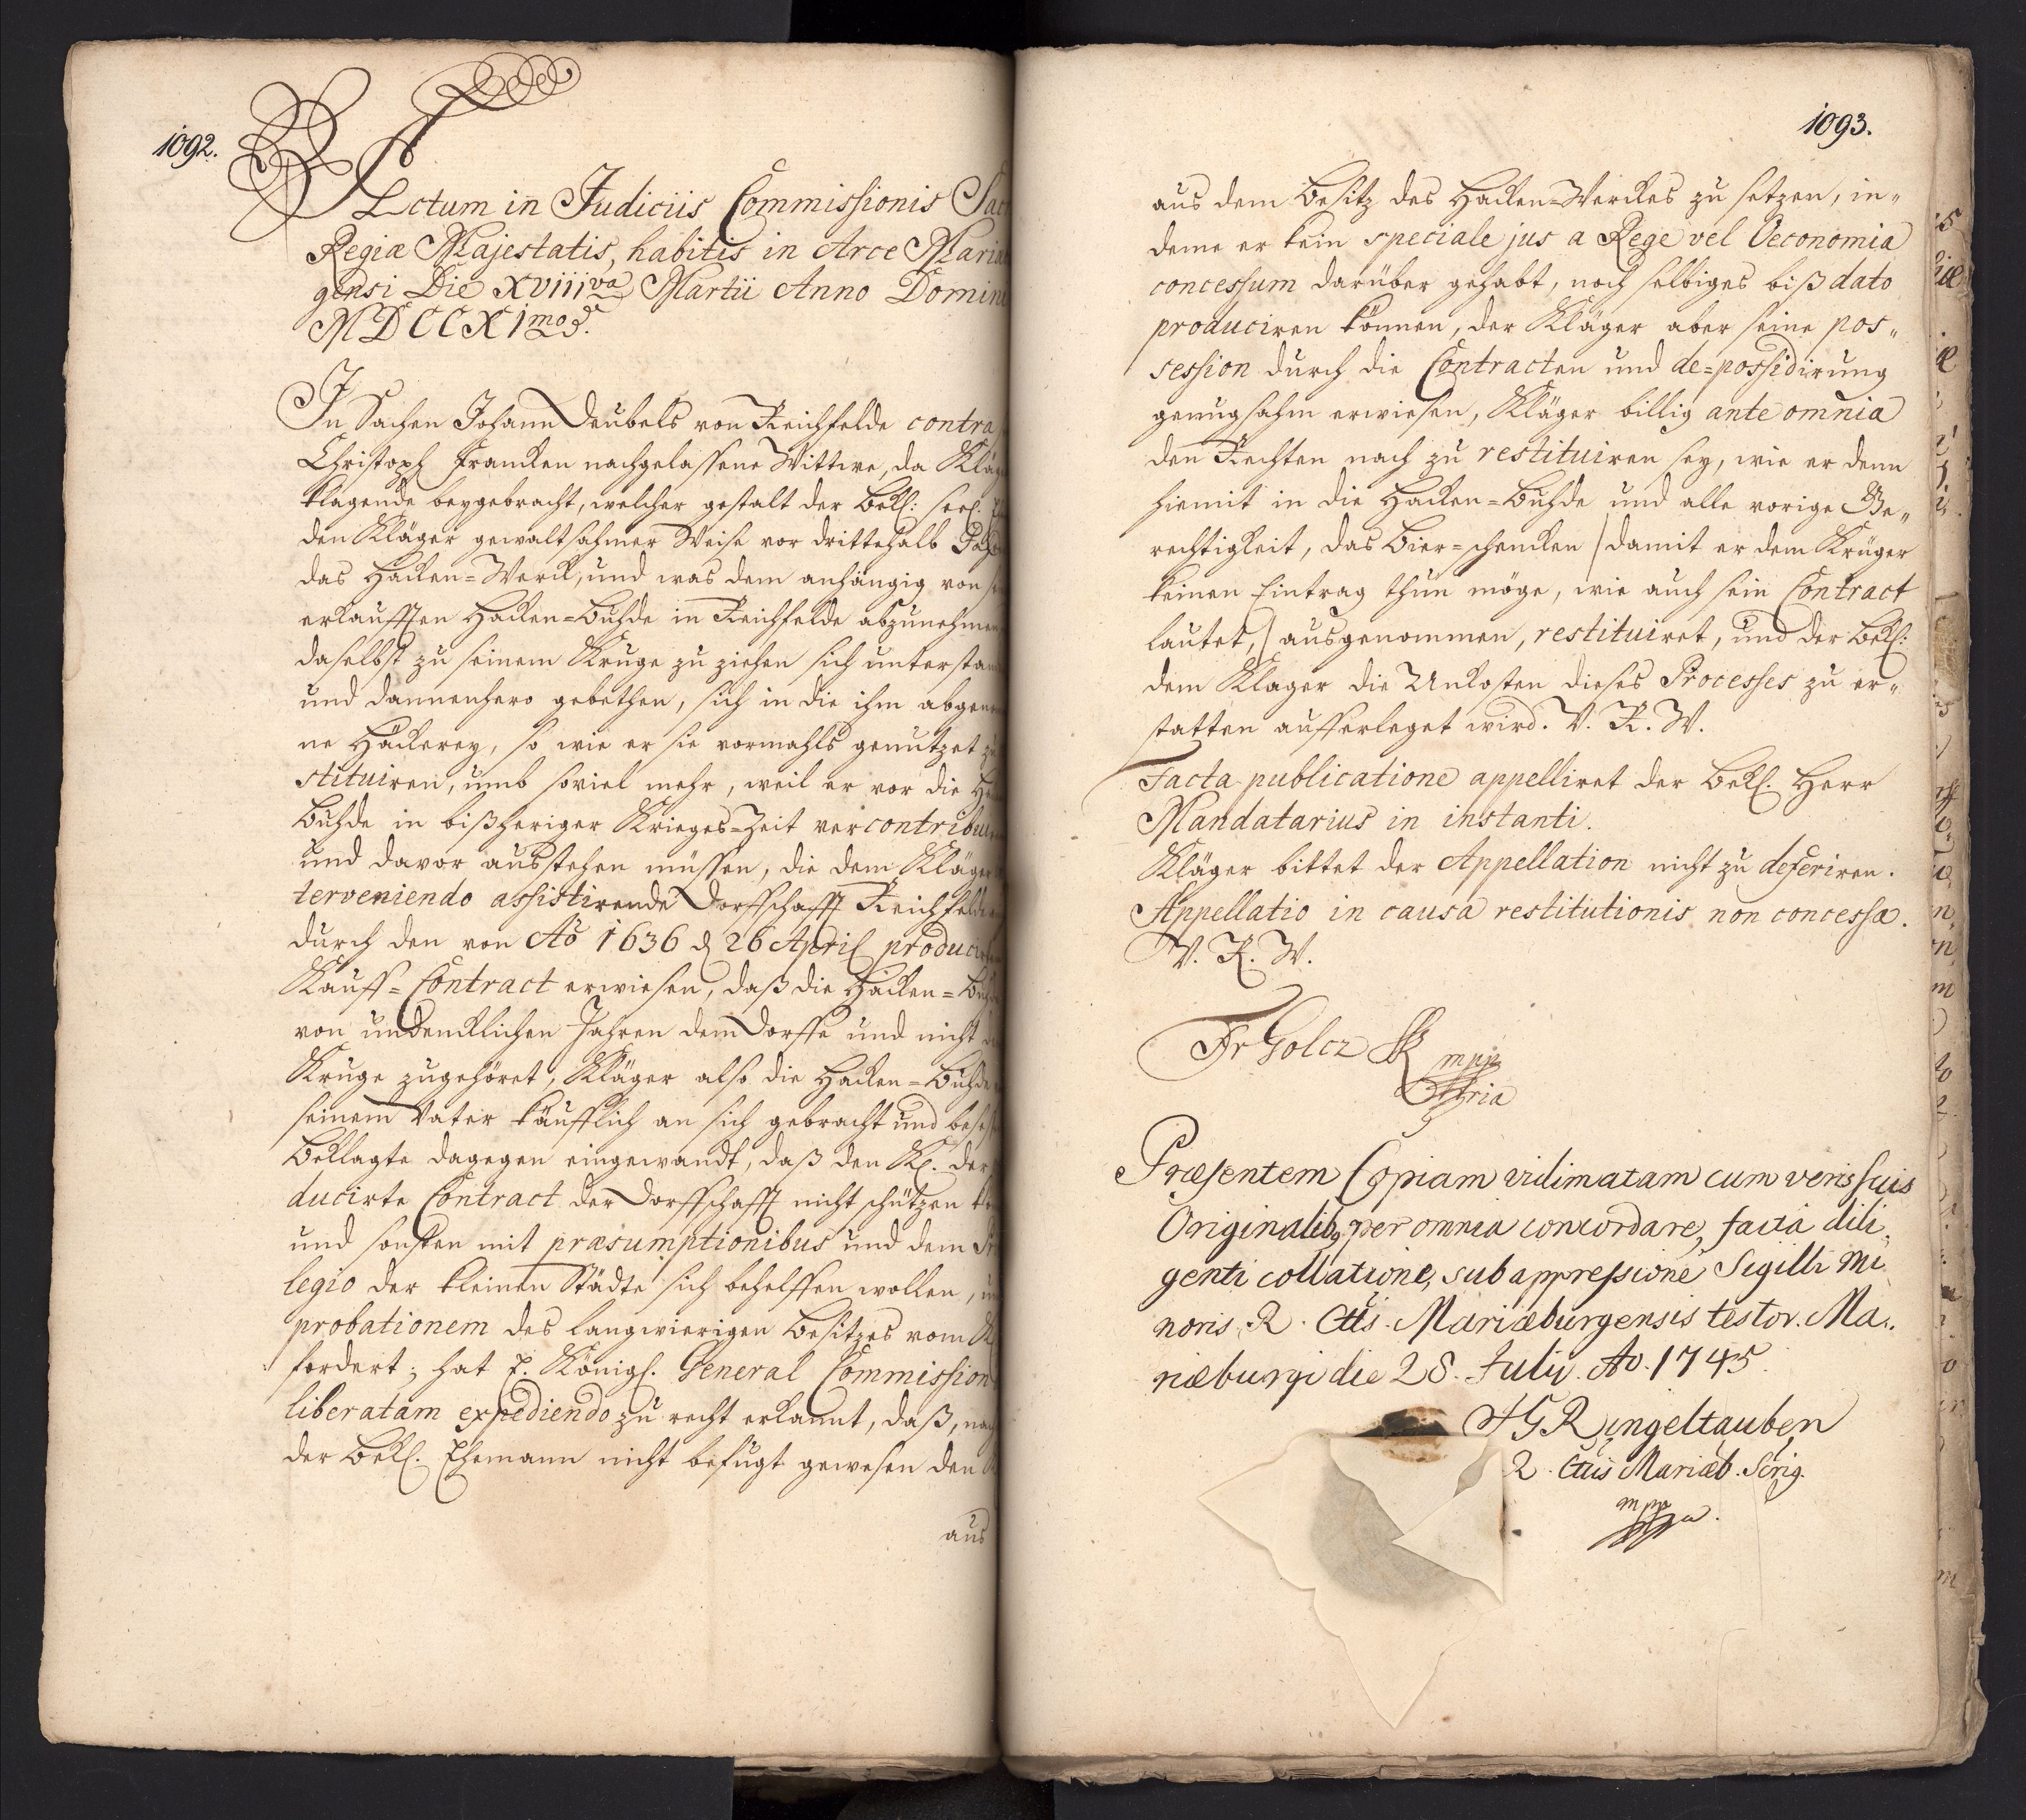 1092.
Actum in Judiciis Commissionis Sac
Regiæ Majestatis, habitis in Arce Maria
gensi Die XVIII va Martii Anno Domin
MDCCXI mo.
In Sachen Johann Deubels von Reichfelde contra
Christoph Francken nachgelassene Wittwe, da Klä
klagende beygebracht, welcher gestalt der Bekl: seel.
den Kläger gewaltsahmer Weise vor drittehalb Jah
das Hacken-Werck, und was dem anhängig von
erkaufften Hacken-Buhde in Reichfelde abzunehmen
daselbst zu seinem Kruge zu ziehen sich unterstan
und dannenhero gebethen, sich in die ihm abgeno
ne Häckerey, so wie er sie vormahls genutzet zu
stituiren, umb soviel mehr, weil er vor die Ha
Buhde in bißheriger Krieges-Zeit vercontribui
und davor ausstehen müssen, die dem Kläger
terveniendo assistirende Dorffschafft Reichfelde
durch den von Aõ 1636 d 26 April producir
Kauff-Contract erwiesen, daß die Hacken-Buh
von undencklichen Jahren dem Dorffe und nicht
Kruge zugehöret, Kläger also die Hacken-Buhde
seinem Vater käufflich an sich gebracht und beses
Beklagte dagegen eingewandt, daß den Kl. der
ducirte Contract der Dorffschafft nicht schützen k
und sonsten mit præsumptionibus und dem Pri
legio der kleinen Städte sich behelffen wollen,
probationem des langwierigen Besitzes vom K
fordert; hat E. Königl. General Commission
liberatam expediendo zu recht erkannt, daß, nach
der Bekl. Ehemann nicht befugt gewesen den
aus
1093.
aus dem Besitz des Hacken-Werckes zu setzen, in„
deme er kein speciale jus a Rege vel Oeconomia
concessum darüber gehabt, noch selbiges biß dato
produciren können, der Kläger aber seine pos„
session durch die Contracten und de-possidirung
genugsahm erwiesen, Kläger billig ante omnia
den Rechten nach zu restituiren sey, wie er denn
hiemit in die Hacken-Buhde und alle vorige Ge„
rechtigkeit, das Bier-schencken /damit er dem Krüger
keinen Eintrag thun möge, wie auch sein Contract
lautet,/ ausgenommen, restituiret, und der Bekl:
dem Klager die Unkosten dieses Processes zu er„
statten aufferleget wird. V. R. W.
Facta publicatione appelliret der Bekl. Herr
Mandatarius in instanti.
Kläger bittet der Appellation nicht zu deferiren.
Appellatio in causa restitutionis non concessa.
V. R. W.
Fr Golcz
mpp
Præsentem Copiam vidimatam cum veris suis
Originalib9 per omnia concordare, facta dili„
genti collatione, sub appressione Sigilli Mi
noris R. Cttis. Mariæburgensis testor. Ma„
riæburgi die 28. Julii. Ao. 1745.
Ringeltauben
R. Cttis Mariæb.
mpp